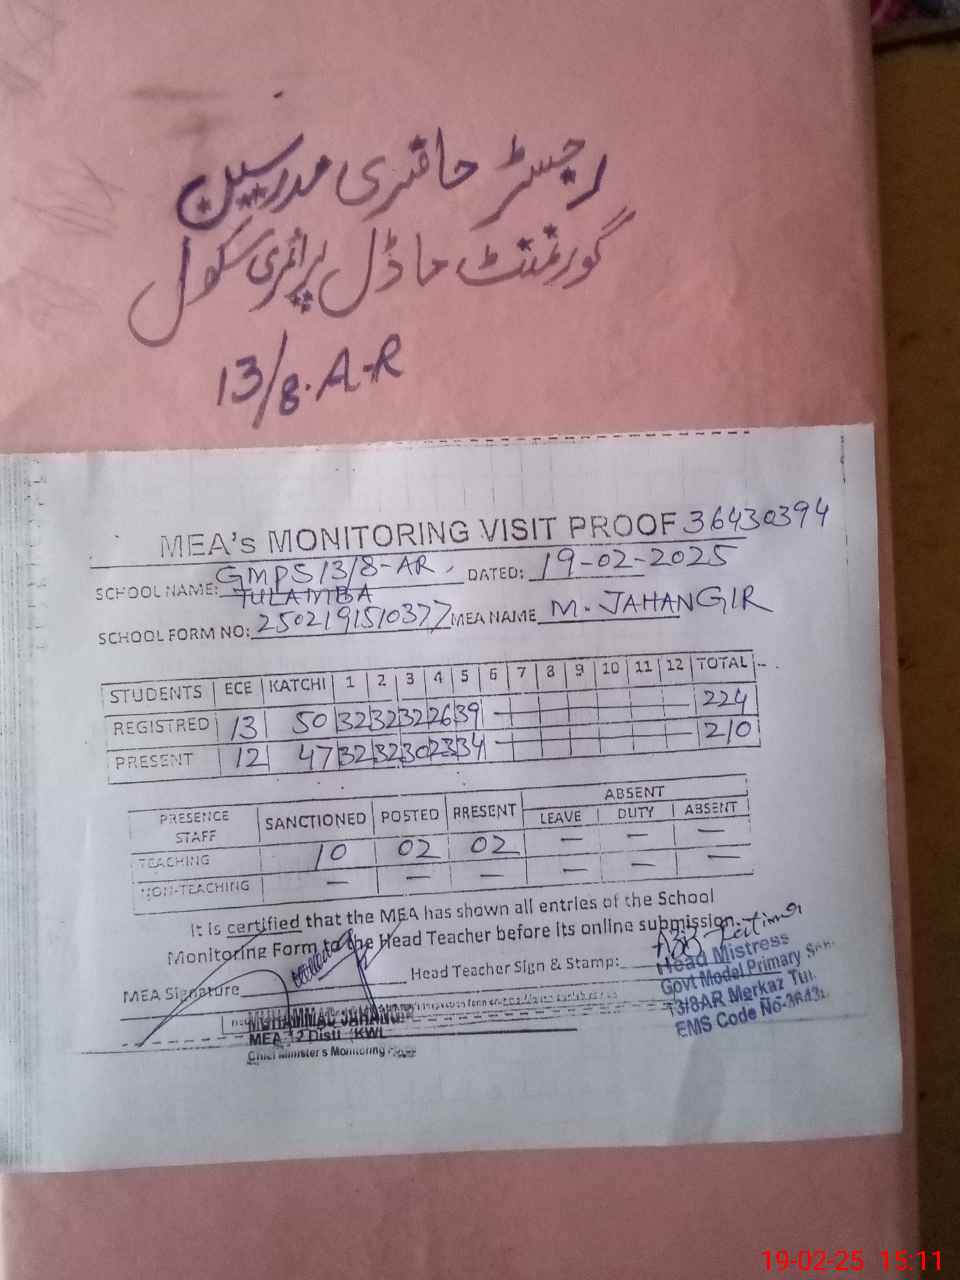 رجسٹر حاضری مدرسین
گورنمنٹ ماڈل پرائمری سکول
13/8.A-R
MEA's MONITORING VISIT PROOF 36430394
SCHOOL NAME: GMPS 13/8-AR, DATED: 19-02-2025
TULAMBA
SCHOOL FORM NO: 2502191510377 MEA NAME M. JAHANGIR
STUDENTS ECE KATCHI 1 2 3 4 5 6 7 8 9 10 11 12 TOTAL
REGISTRED 13 50 32 32 32 26 39 224
PRESENT 12 47 32 32 30 23 34 210
PRESENCE STAFF SANCTIONED POSTED PRESENT ABSENT
LEAVE DUTY ABSENT
TEACHING 10 02 02 — — —
NON-TEACHING — — — — — —
It is certified that the MEA has shown all entries of the School
Monitoring Form to the Head Teacher before its online submission.
MEA Signature Head Teacher Sign & Stamp:
Head Mistress
Govt Model Primary
13/8AR Merkaz
EMS Code No-
MUHAMMAD JAHANGIR
MEA 12 KWL
Chief Minister's Monitoring
19-02-25 15:11